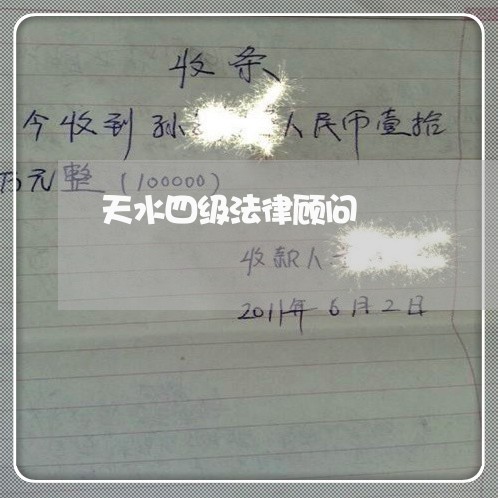 收条
今收到孙 人民币壹拾
万元整（100000）
天水四级法律顾问
收款人
2011年6月2日